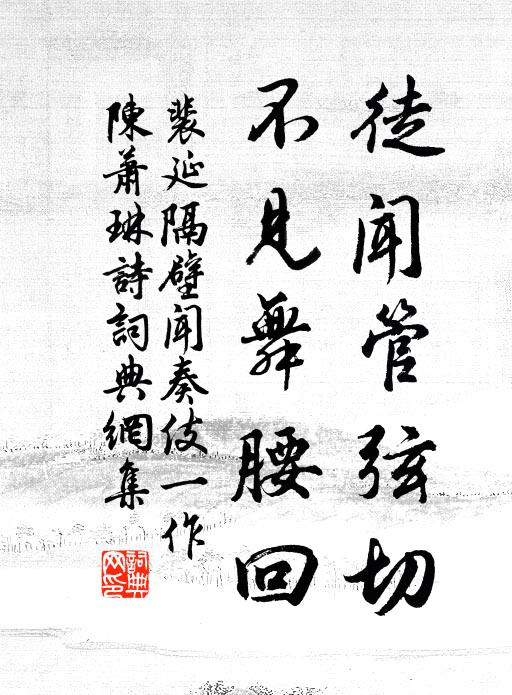 徒闻管弦切
不见舞腰回
裴延隔壁闻奏伎一作
陳蕭琳詩詞典網集
詞典
网印